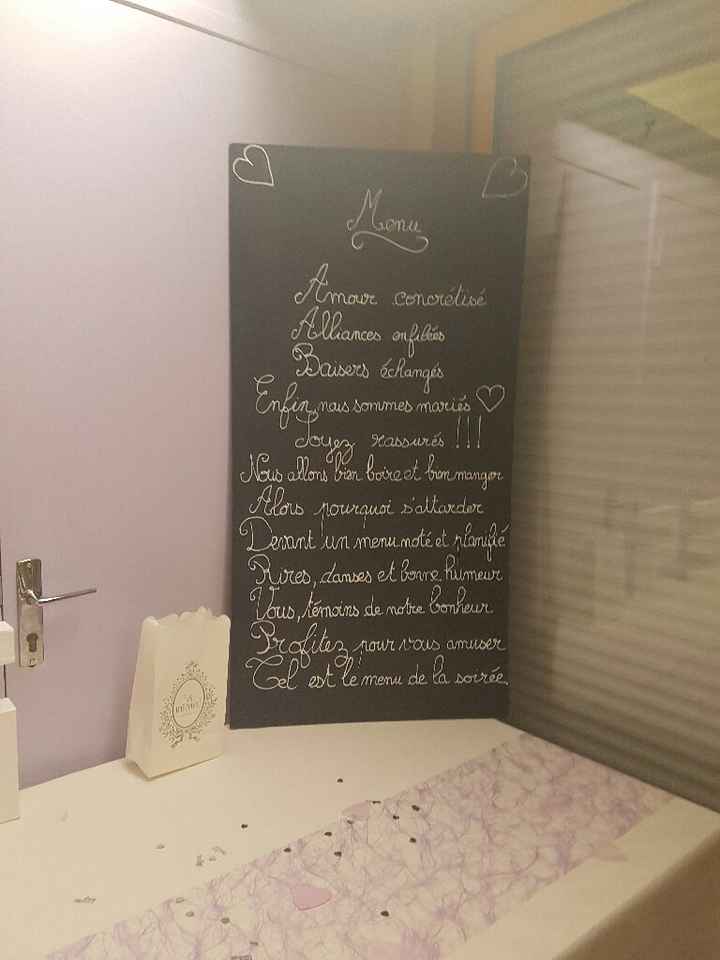 Menu
Amour concrétisé
Alliances enfilées
Baisers échangés
Enfin, nous sommes mariés
Soyez rassurés !!!
Nous allons bien boire et bien manger
Alors pourquoi s'attarder
Devant un menu noté et planifié
Rires, danses et bonne humeur
Vous, témoins de notre bonheur
Profitez pour vous amuser
Tel est le menu de la soirée